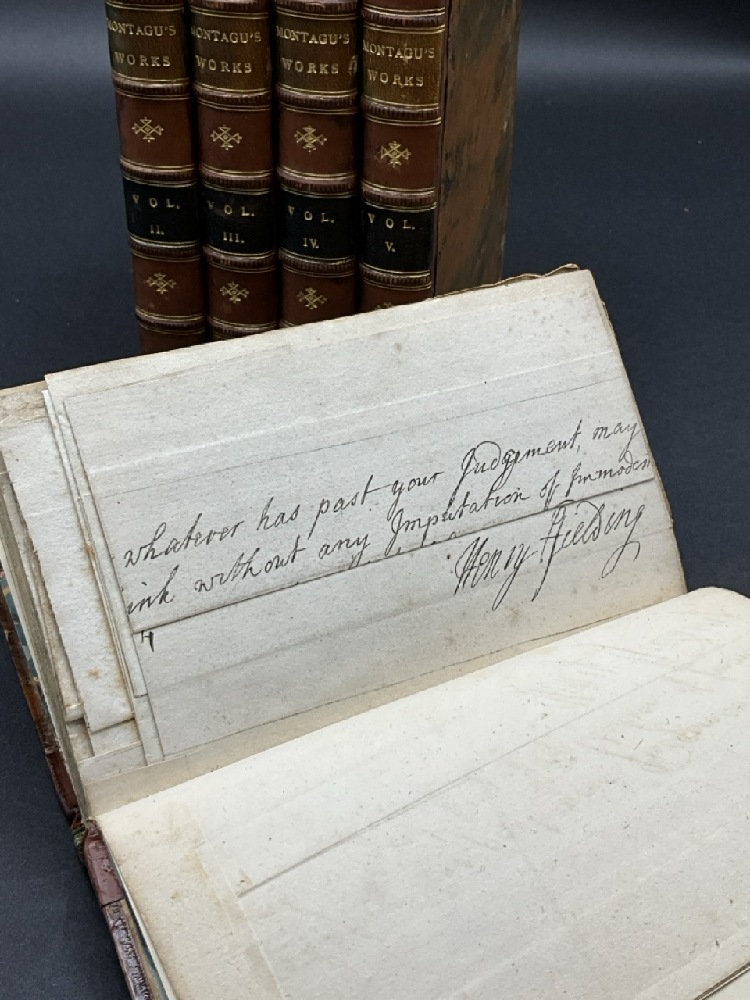 MONTAGU'S
WORKS
VOL.
II.
MONTAGU'S
WORKS
VOL.
III.
MONTAGU'S
WORKS
VOL.
IV.
MONTAGU'S
WORKS
VOL.
V.
whatever has past your Judgement, may
ink without any Imputation of Immodest
Henry Fielding
4